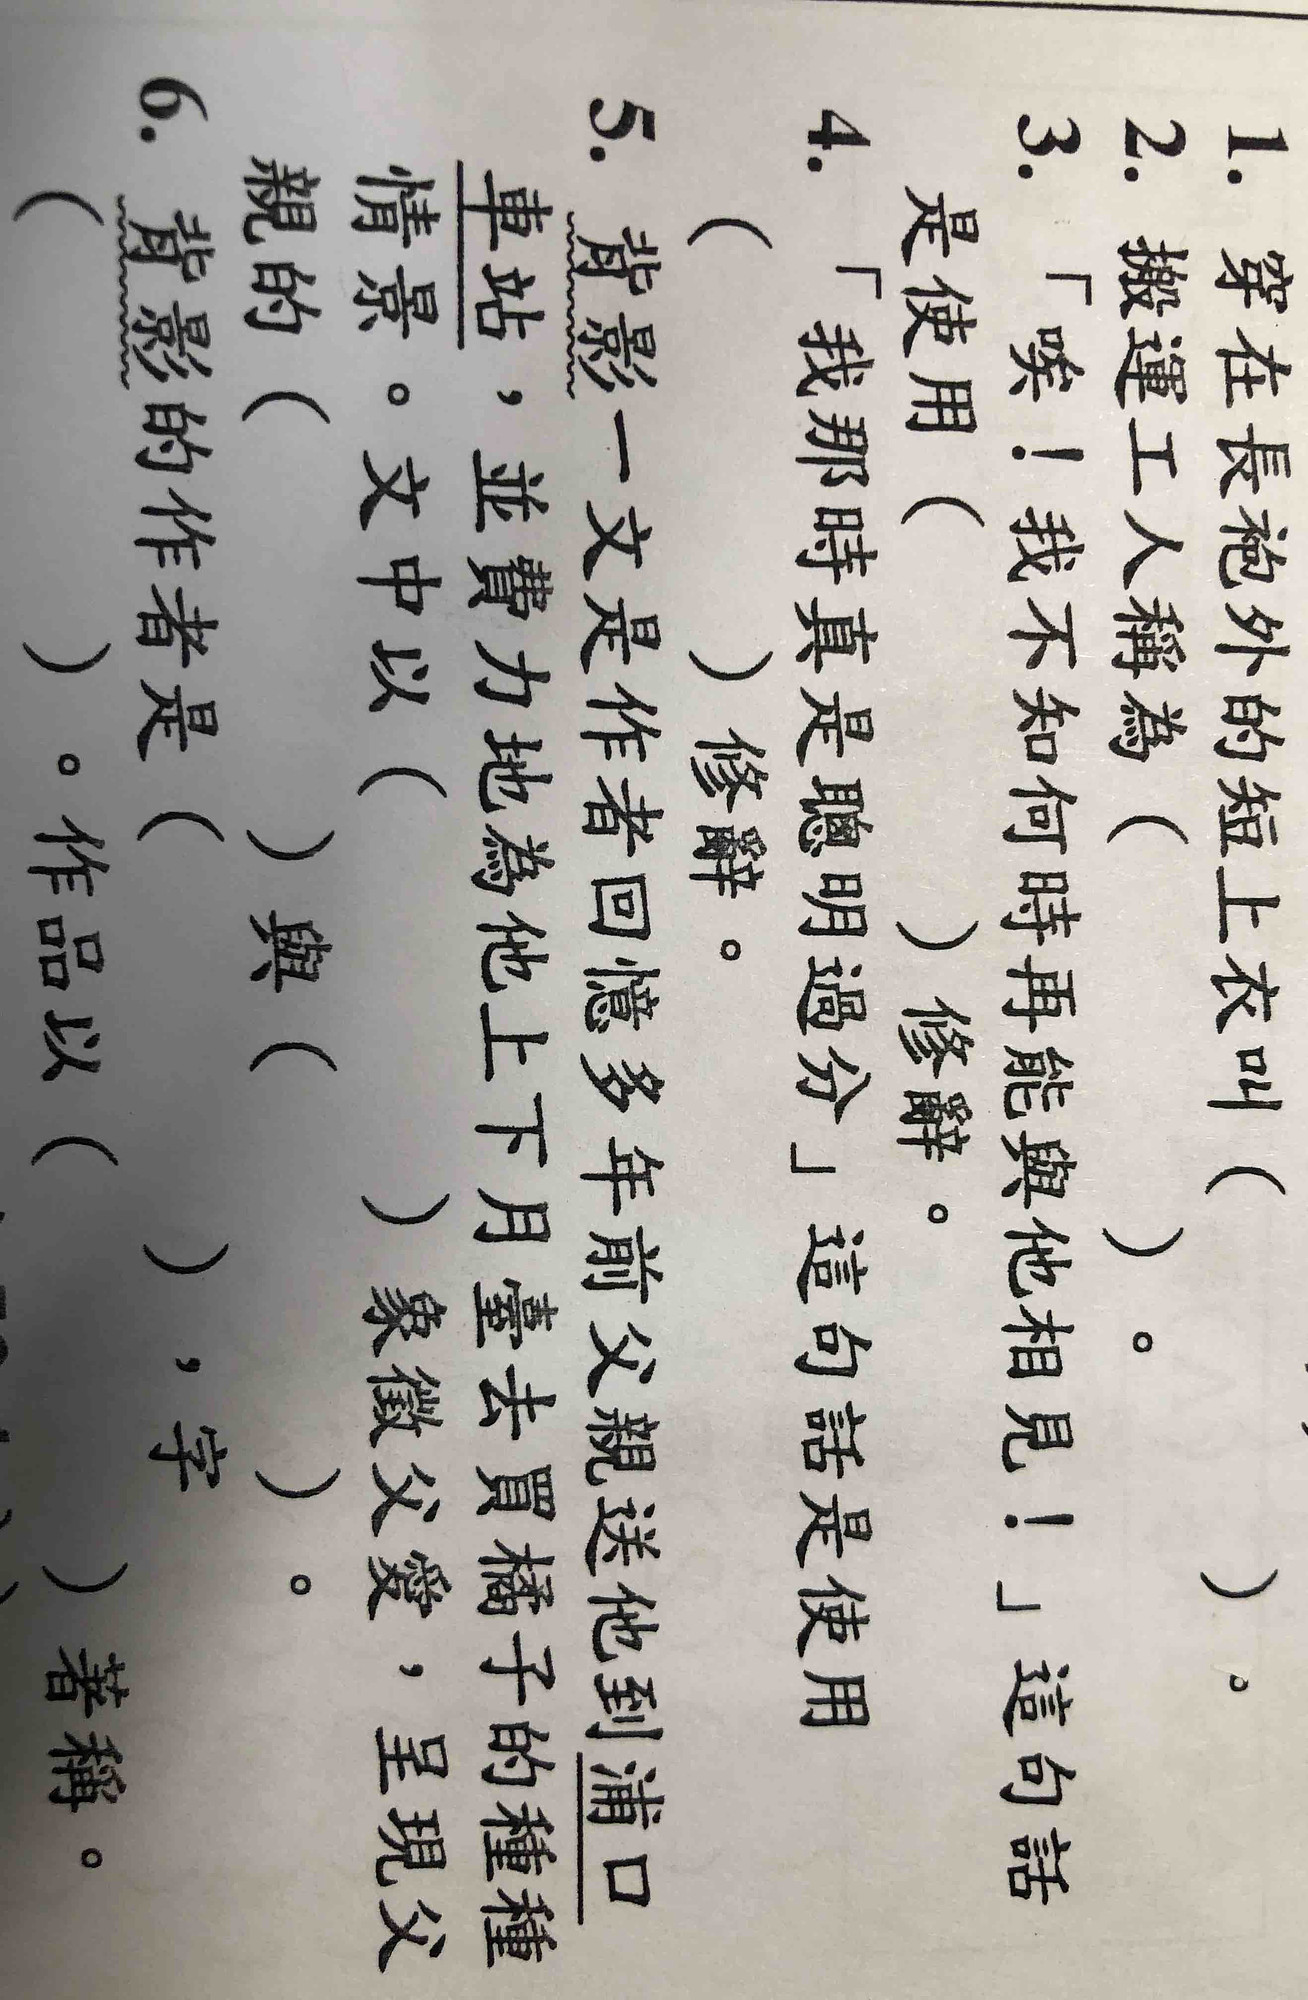 1. 穿在長袍外的短上衣叫（　　　　）。
2. 搬運工人稱為（　　　　）。
3. 「唉！我不知何時再能與他相見！」這句話
是使用（　　　　）修辭。
4. 「我那時真是聰明過分」這句話是使用
（　　　　）修辭。
5. 背影一文是作者回憶多年前父親送他到浦口
車站，並費力地為他上下月臺去買橘子的種種
情景。文中以（　　　　）象徵父愛，呈現父
親的（　　　　）與（　　　　）。
6. 背影的作者是（　　　　），字
（　　　　）。作品以（　　　　）著稱。